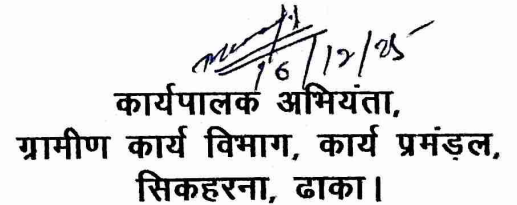 16/12/25
कार्यपालक अभियंता,
ग्रामीण कार्य विभाग, कार्य प्रमंड़ल,
सिकहरना, ढाका।